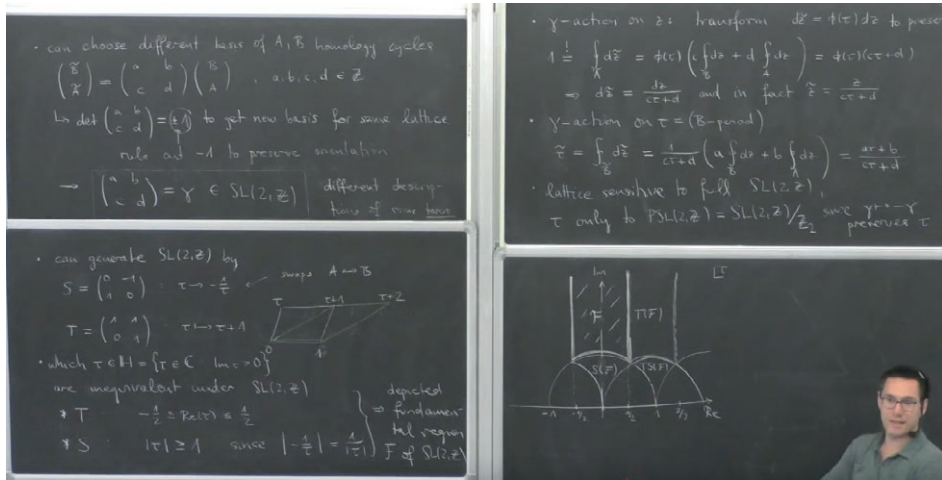 · can choose different basis of A, B homology cycles
(B̃ Ã) = (a b c d) (B A) , a, b, c, d ∈ ℤ
↳ det (a b c d) = (±1) to get new basis for same lattice
rule out -1 to preserve orientation
→ (a b c d) = γ ∈ SL(2, ℤ) different descrip-
tions of same torus
· can generate SL(2, ℤ) by
S = (0 -1 1 0) : τ → -1/τ swaps A ↔ B
T = (1 1 0 1) : τ ↦ τ+1
τ τ+1 τ+2
0 1
· which τ ∈ ℍ = {τ ∈ ℂ Im τ > 0}
are inequivalent under SL(2, ℤ)
* T : -1/2 ≤ Re(τ) ≤ 1/2
* S : |τ| ≥ 1 since |-1/τ| = 1/|τ|
depicted
⇒ fundamen-
tal region
F of SL(2, ℤ)
· γ-action on z: transform dz̃ = φ(τ) dz to prese
1 =! ∮_Ã dz̃ = φ(τ) (c ∮_B dz + d ∮_A dz) = φ(τ)(cτ+d)
⇒ dz̃ = dz/(cτ+d) and in fact z̃ = z/(cτ+d)
· γ-action on τ = (B-period)
τ̃ = ∮_B̃ dz̃ = 1/(cτ+d) (a ∮_B dz + b ∮_A dz) = (aτ+b)/(cτ+d)
· lattice sensitive to full SL(2, ℤ),
τ only to PSL(2, ℤ) = SL(2, ℤ)/ℤ₂ since γ ↔ -γ
preserves τ
Im
F T(F)
S(F) TS(F)
-1 -1/2 1/2 1 3/2 Re